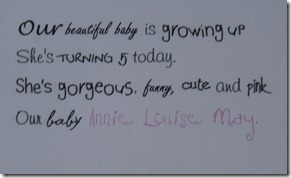 Our beautiful baby is growing up
She's TURNING 5 today.
She's gorgeous, funny, cute and pink
Our baby Annie Louise May.